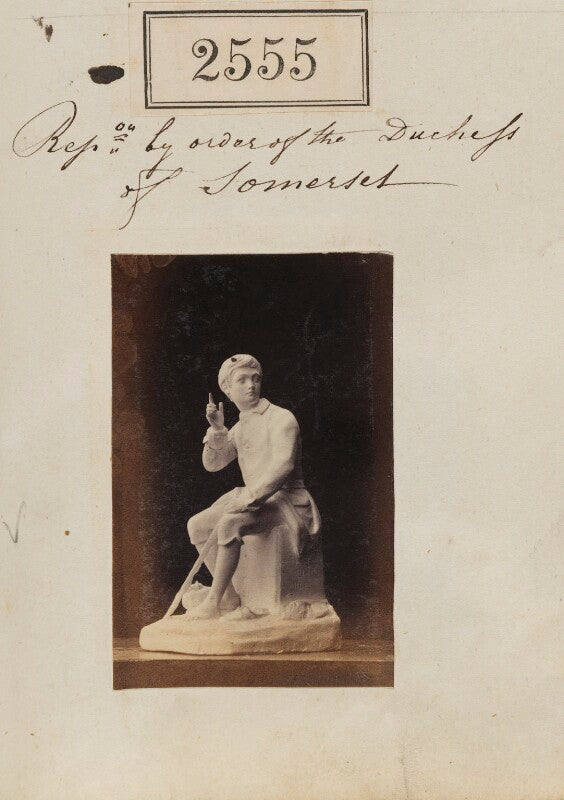 2555
Rep.on by order of the Duchess
of Somerset